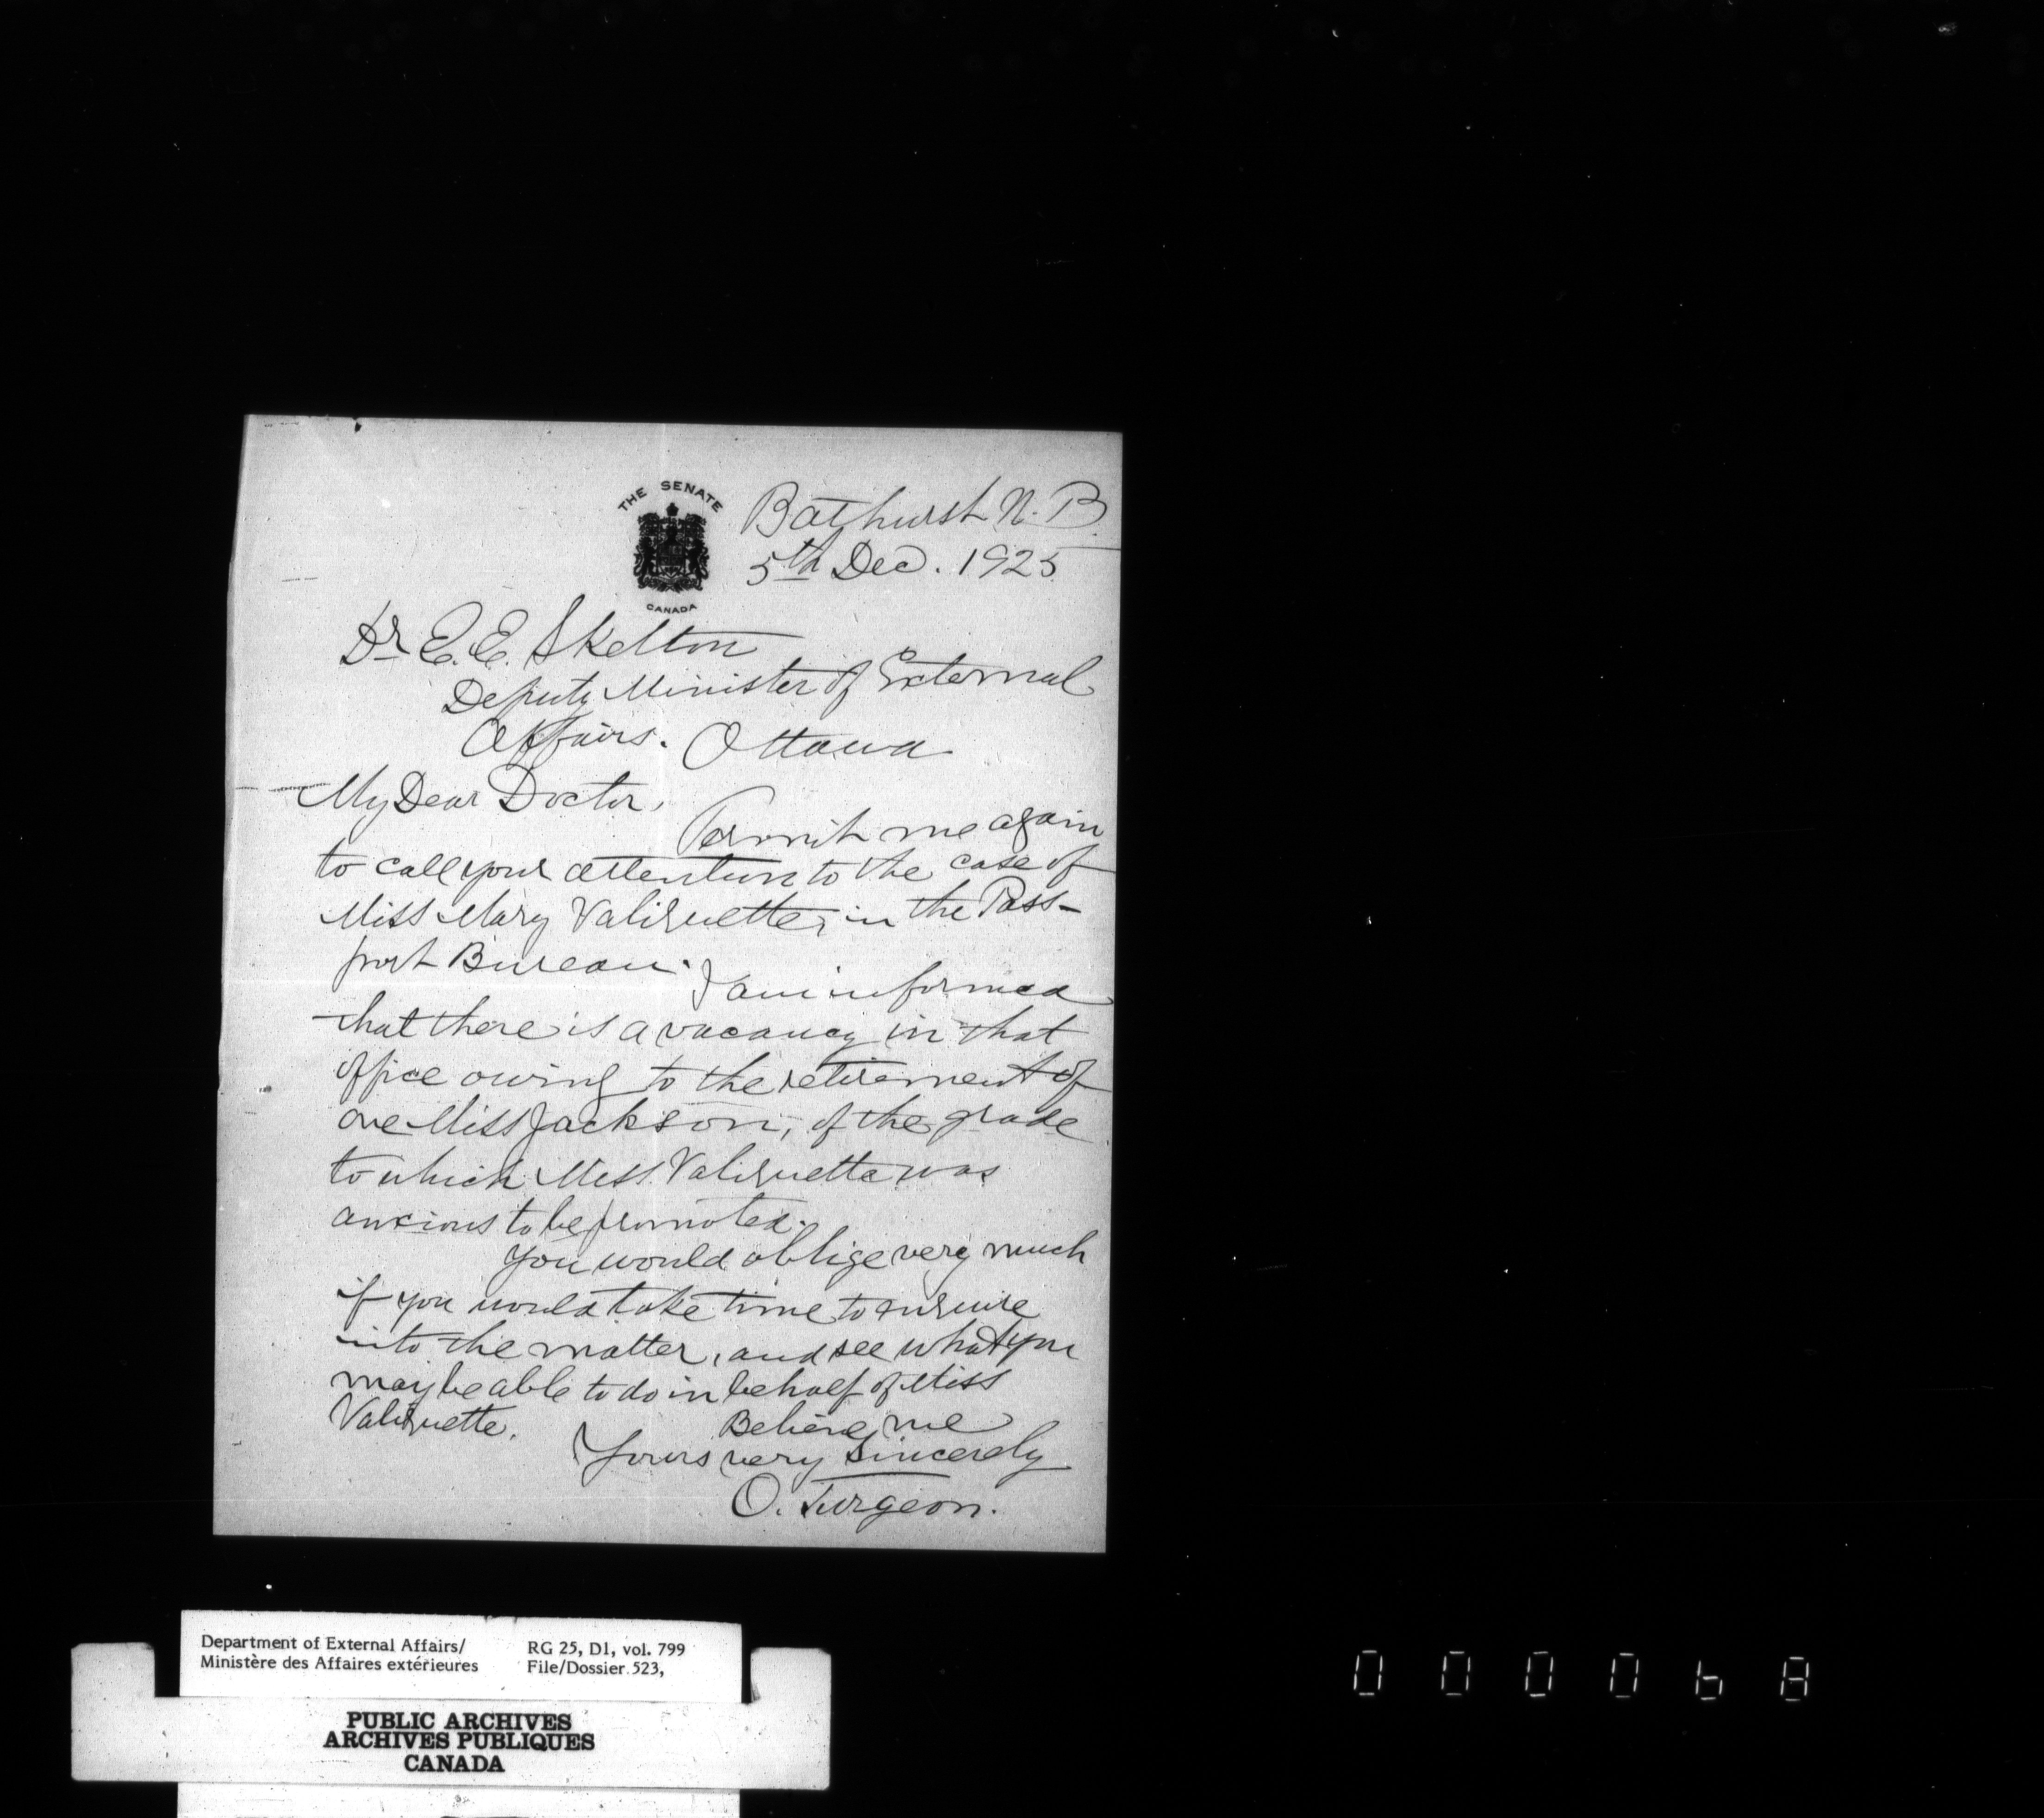 THE SENATE
CANADA
Bathurst N.B.
5th Dec. 1925
Dr E.E. Skelton
Deputy Minister of External
Affairs. Ottawa
My Dear Doctor,
Permit me again
to call your attention to the case of
Miss Mary Valiquette, in the Pass-
port Bureau.
I am informed
that there is a vacancy in that
office owing to the retirement of
one Miss Jackson, of the grade
to which Miss Valiquette was
anxious to be promoted.
You would oblige very much
if you would take time to enquire
into the matter, and see what you
may be able to do in behalf of Miss
Valiquette.
Believe me
Yours very Sincerely
O. Turgeon.
Department of External Affairs/ RG 25, D1, vol. 799
Ministère des Affaires extérieures File/Dossier 523,
PUBLIC ARCHIVES
ARCHIVES PUBLIQUES
CANADA
000068